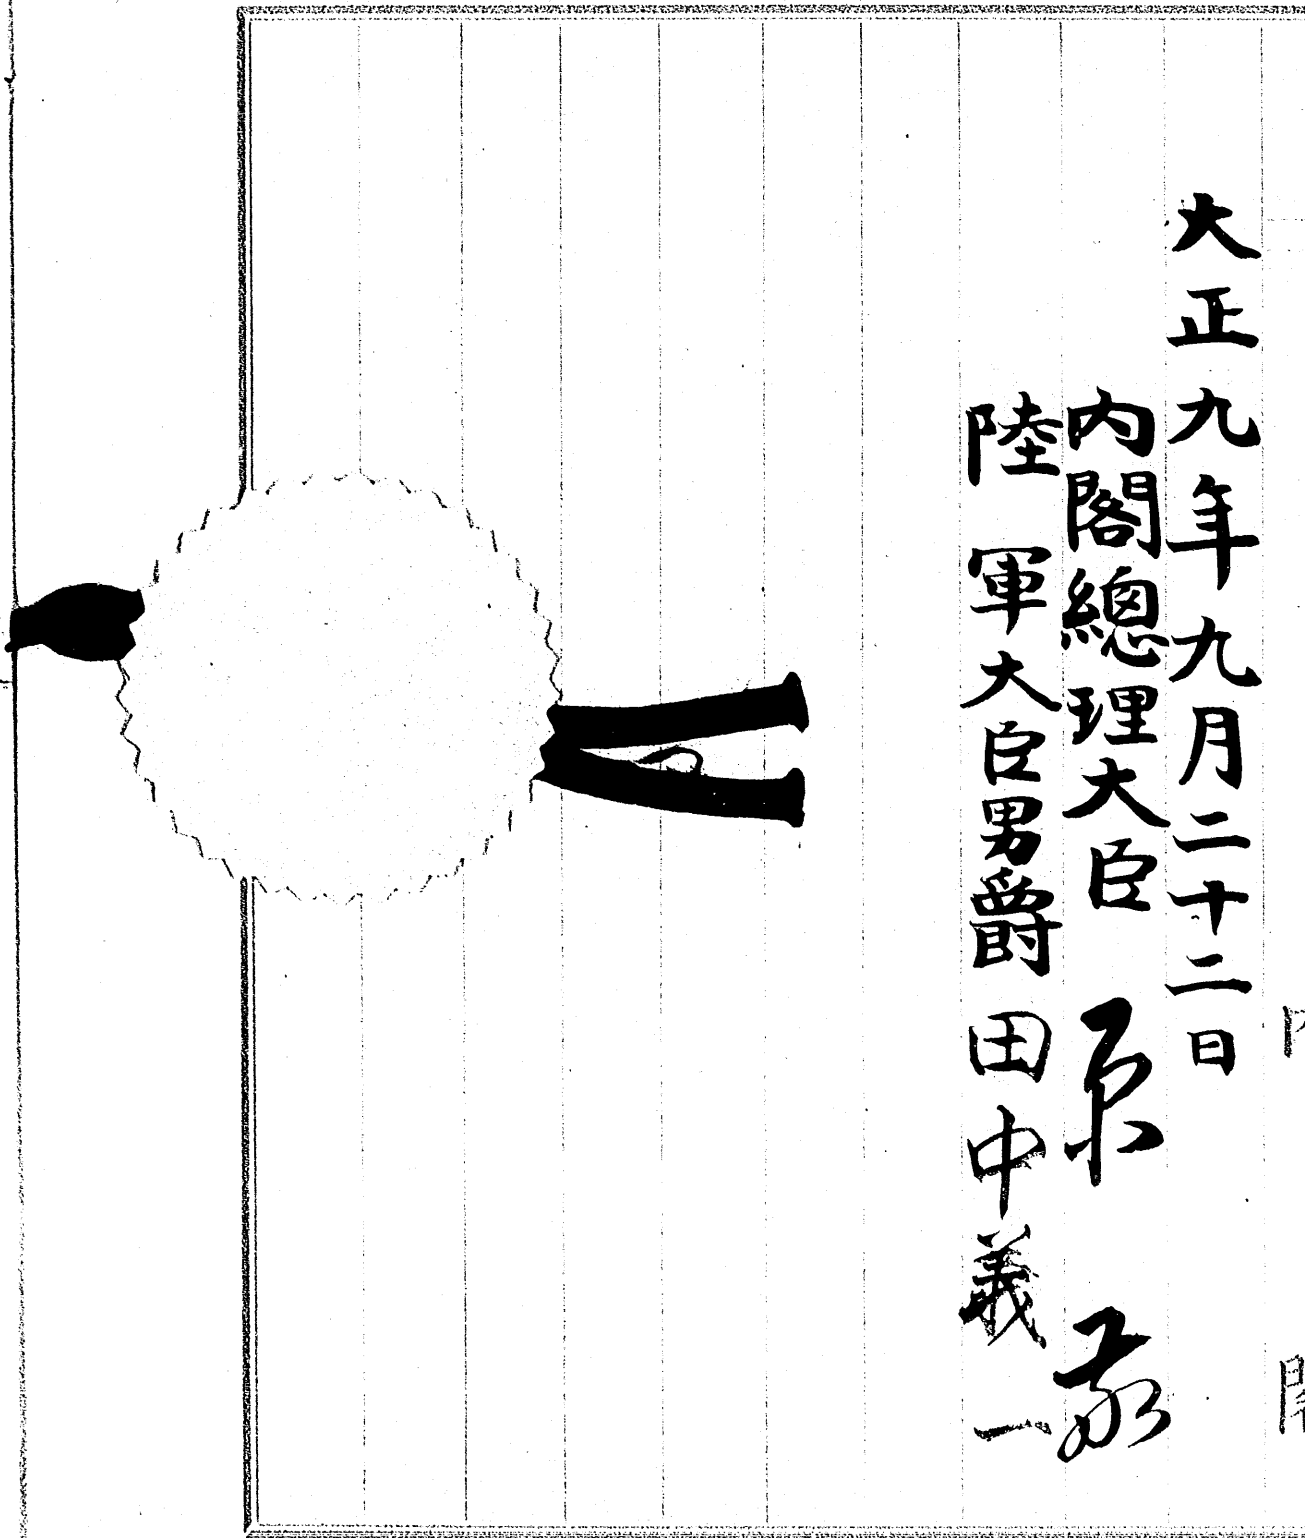 大正九年九月二十二日
内閣總理大臣 原 敬
陸軍大臣男爵 田中義一